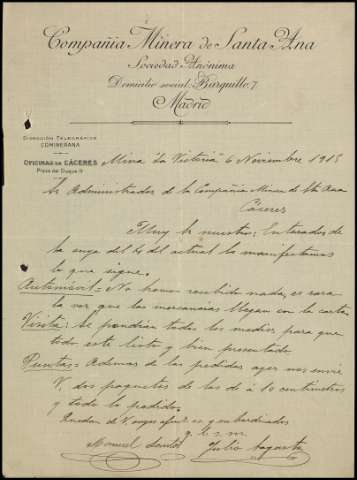 Compañia Minera de Santa Ana
Sociedad Anónima
Domicilio social: Barquillo, 7
Madrid
DIRECCIÓN TELEGRÁFICA
COMINESANA
OFICINAS EN CÁCERES
Plaza del Duque 11
Mina "La Victoria" 6 Noviembre 1913
Sr Administrador de la Compañia Minera de Sta Ana
Cáceres
Muy Sr nuestro: Enterados de
la suya del 4 del actual le manifestamos
lo que sigue.
Automóvil: No hemos recibido nada, es rara
la vez que las mercancias llegan con la carta.
Visita: Se pondrían todos los medios para que
todo este listo y bien presentado
Puntas: Ademas de las pedidas ayer nos envie
V. dos paquetes de las de á 10 centímetros
y todo lo pedido.
Quedan de V. suyos afmos s y subordinados
q. b. s. m.
Manuel Santos Julio Sagasta